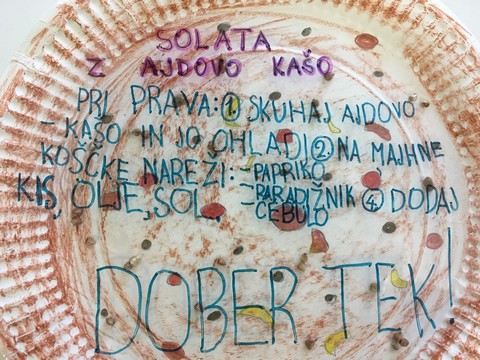 SOLATA
Z AJDOVO KAŠO
PRI PRAVA: 1 SKUHAJ AJDOVO
- KAŠO IN JO OHLADI 2 NA MAJHNE
KOŠČKE NAREŽI: - PAPRIKO
- PARADIŽNIK 4 DODAJ
KIS, OLJE, SOL. ČEBULO
DOBER TEK!